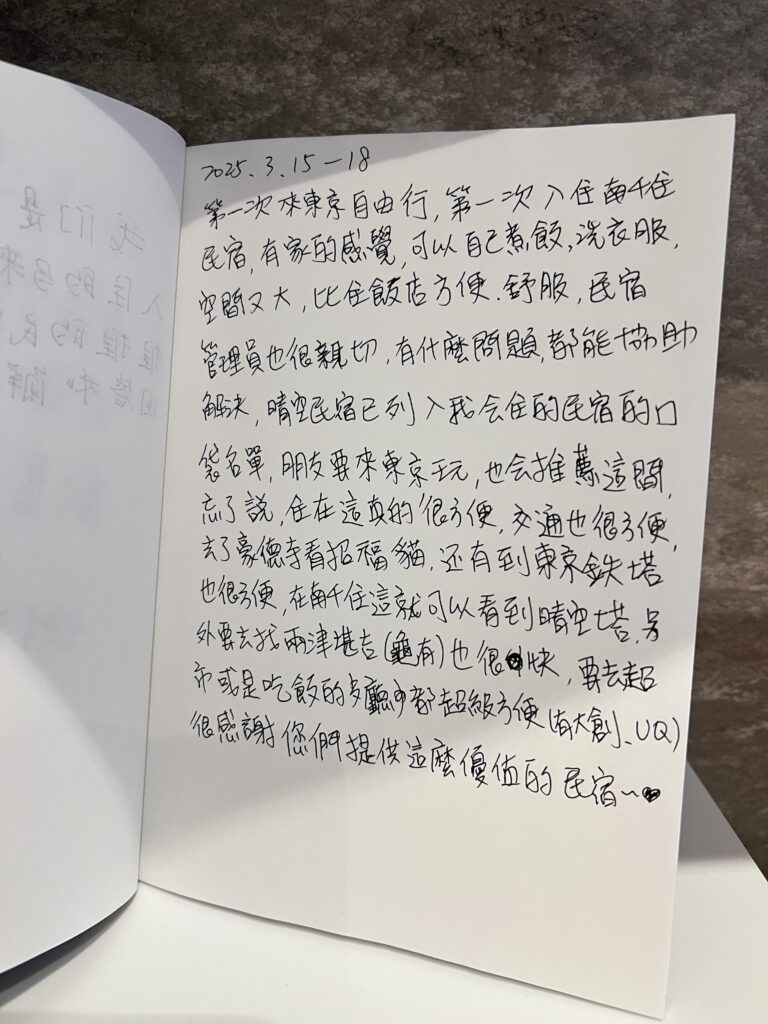 2025.3.15-18
第一次來東京自由行,第一次入住南千住
民宿,有家的感覺,可以自己煮飯,洗衣服,
空間又大,比住飯店方便.舒服,民宿
管理員也很親切,有什麼問題,都能協助
解決,晴空民宿已列入我会住的民宿的口
袋名單,朋友要來東京玩,也会推薦這間,
忘了說,住在這真的很方便,交通也很方便,
去了豪德寺看招福貓,还有到東京鉄塔
也很方便,在南千住這就可以看到晴空塔,另
外要去找兩津堪吉(龜有)也很快,要去超
市或是吃飯的歺廳都超級方便(有大創、UQ)
很感謝您們提供這麼優值的民宿~♥